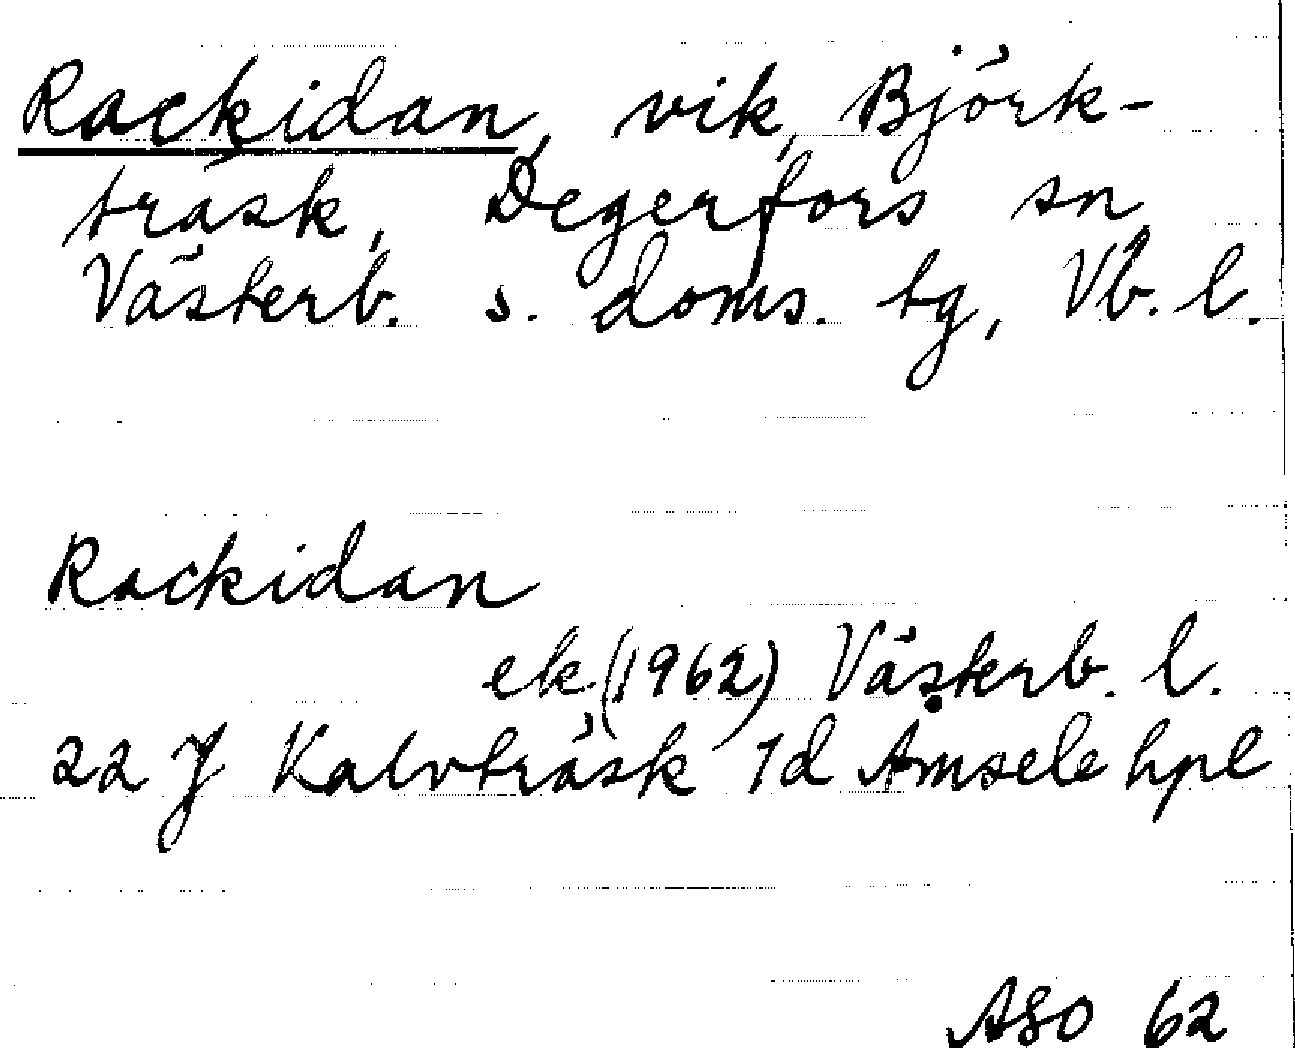 Rackidan, vik, Björk-
träsk, Degerfors sn
Västerb. s. doms. tg, Vb. l.
Rackidan
ek. (1962) Västerb. l.
22 J Kalvträsk 1d Åmsele hpl
ASO 62